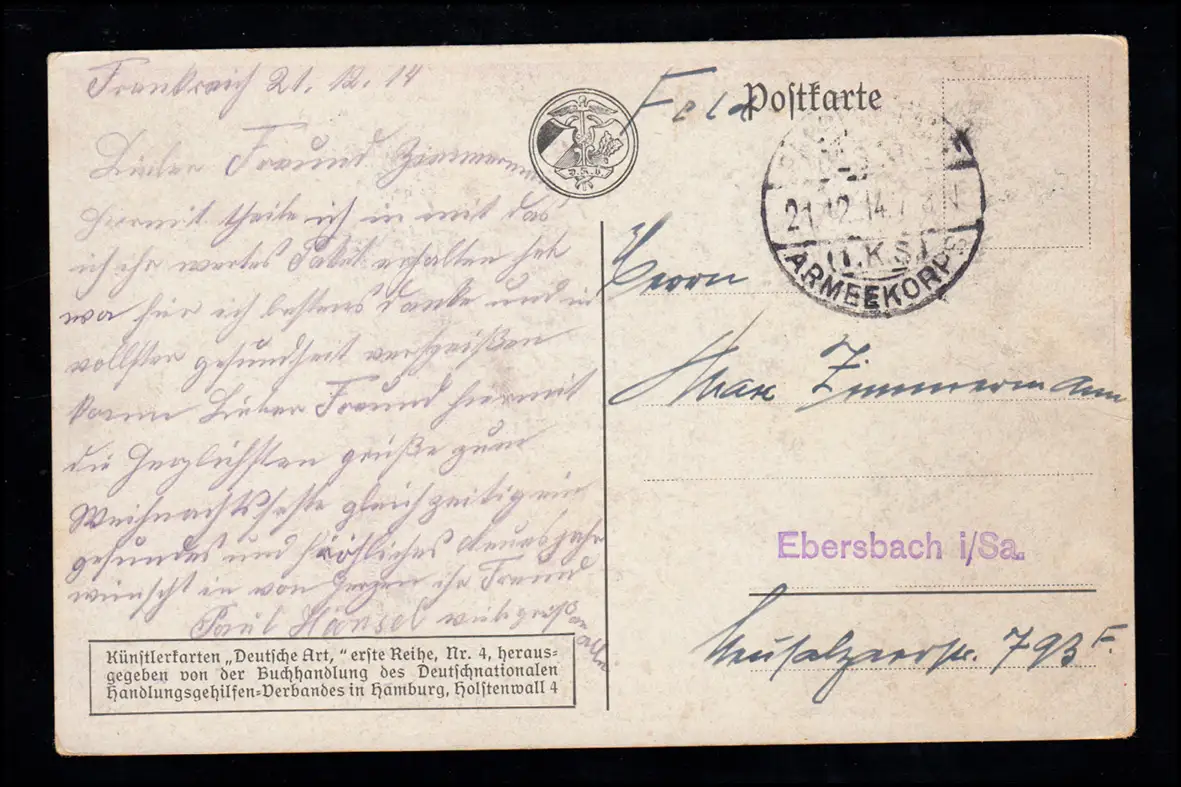 Frankreich 21. 12. 14
Lieber Freund Zimmermann
hiermit theile ich in mit das
ich ihr wertes Paket erhalten hab
wo für ich bestens danke und in
vollster gesundheit verspeißen
kann Lieber Freund hiermit
die Herzlichsten grüße zum
Weihnachtsfeste gleichzeitig ein
gesundes und fröhliches Neuesjahr
wünscht in von Herzen ihr Freund
Paul Hänsel viele grüße an
alle
Künstlerkarten „Deutsche Art,“ erste Reihe, Nr. 4, heraus-
gegeben von der Buchhandlung des Deutschnationalen
Handlungsgehilfen-Verbandes in Hamburg, Holstenwall 4
D.H.V.
Feld Postkarte
21.12.14.7
(1.K.S.)
ARMEEKORPS
Herrn
Max Zimmermann
Ebersbach i/Sa.
Neusalzaerstr. 793 F.